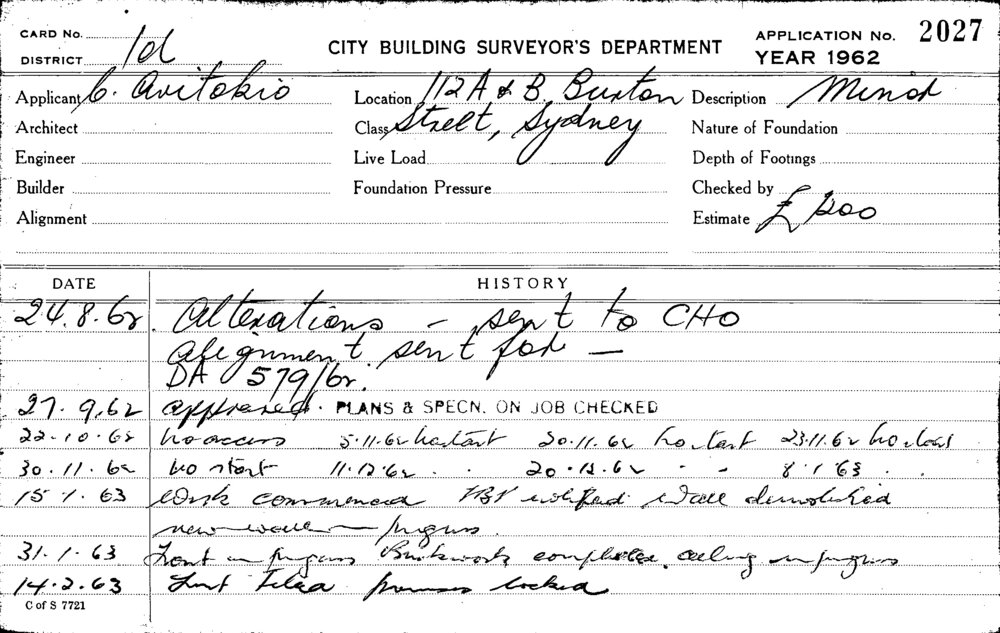 CARD No.
DISTRICT
CITY BUILDING SURVEYOR'S DEPARTMENT
APPLICATION No. 2027
YEAR 1962
Applicant C. Avitokio
Location 112 A & B Buxton
Description Minor
Architect
Class Street, Sydney
Nature of Foundation
Engineer
Live Load
Depth of Footings
Builder
Foundation Pressure
Checked by
Alignment
Estimate £ 1200
DATE HISTORY
24.8.62. Alterations – sent to CHO
Alignment sent for –
DA 579/62.
27.9.62 approved. PLANS & SPECN. ON JOB CHECKED
22.10.62 No access 5.11.62 no start 20.11.62 no start 23.11.62 no start
30.11.62 no start 11.12.62 . . 20.12.62 - - 8.1.63 . .
15.1.63 Work commenced notified wall demolished
new wall in progress.
31.1.63 Front in progress Brickwork completed. ceiling in progress
14.2.63 Front premises locked
C of S 7721